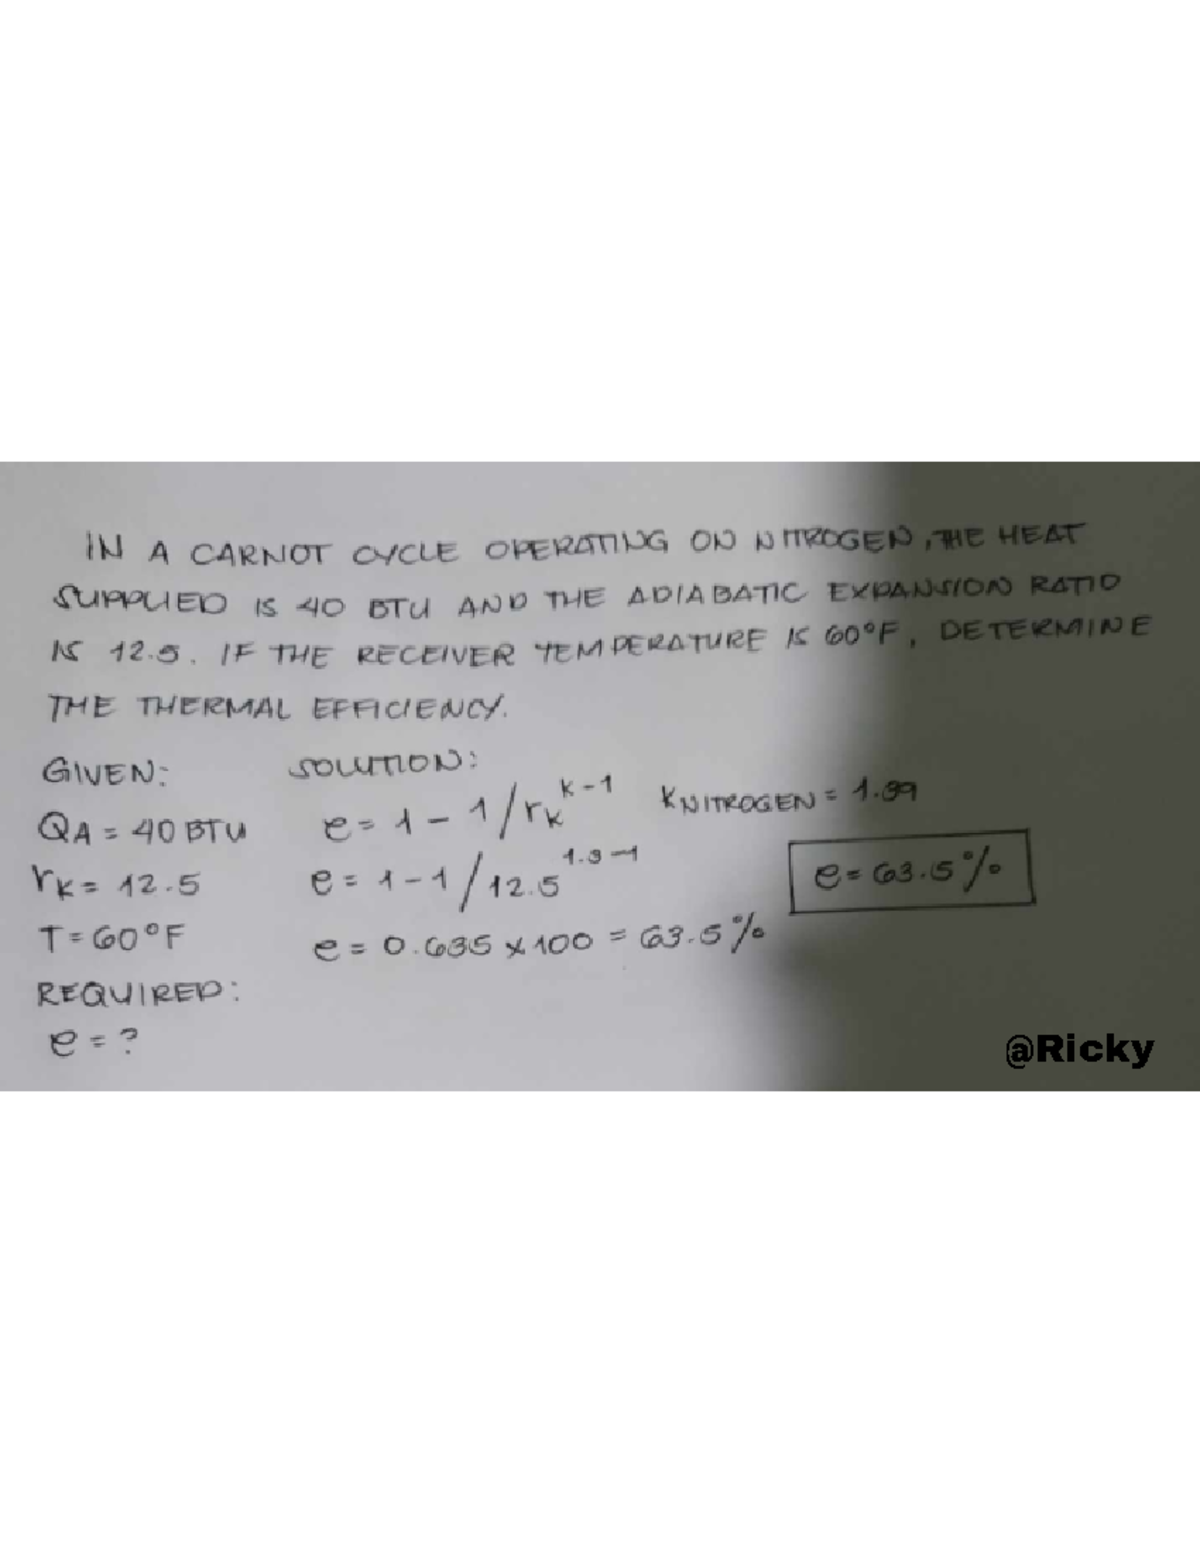 IN A CARNOT CYCLE OPERATING ON NITROGEN, THE HEAT
SUPPLIED IS 40 BTU AND THE ADIABATIC EXPANSION RATIO
IS 12.5. IF THE RECEIVER TEMPERATURE IS 60°F, DETERMINE
THE THERMAL EFFICIENCY.
GIVEN:
QA = 40 BTU
rK = 12.5
T = 60°F
REQUIRED:
e = ?
SOLUTION:
e = 1 - 1/rK^K-1
e = 1 - 1/12.5^1.3-1
e = 0.635 x 100 = 63.5%
KNITROGEN = 1.39
e = 63.5%
@Ricky